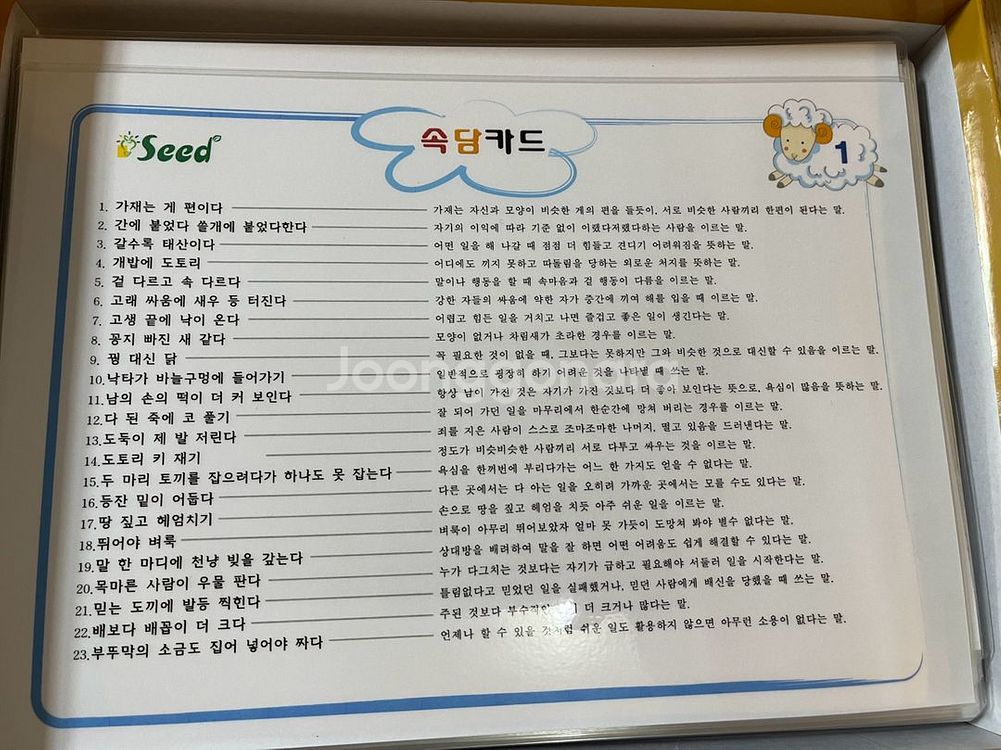 Seed
속담카드
1
1. 가재는 게 편이다 가재는 자신과 모양이 비슷한 게의 편을 들듯이, 서로 비슷한 사람끼리 한편이 된다는 말.
2. 간에 붙었다 쓸개에 붙었다한다 자기의 이익에 따라 기준 없이 이랬다저랬다하는 사람을 이르는 말.
3. 갈수록 태산이다 어떤 일을 해 나갈 때 점점 더 힘들고 견디기 어려워짐을 뜻하는 말.
4. 개밥에 도토리 어디에도 끼지 못하고 따돌림을 당하는 외로운 처지를 뜻하는 말.
5. 겉 다르고 속 다르다 말이나 행동을 할 때 속마음과 겉 행동이 다름을 이르는 말.
6. 고래 싸움에 새우 등 터진다 강한 자들의 싸움에 약한 자가 중간에 끼여 해를 입을 때 이르는 말.
7. 고생 끝에 낙이 온다 어렵고 힘든 일을 거치고 나면 즐겁고 좋은 일이 생긴다는 말.
8. 꽁지 빠진 새 같다 모양이 없거나 차림새가 초라한 경우를 이르는 말.
9. 꿩 대신 닭 꼭 필요한 것이 없을 때, 그보다는 못하지만 그와 비슷한 것으로 대신할 수 있음을 이르는 말.
10.낙타가 바늘구멍에 들어가기 일반적으로 굉장히 하기 어려운 것을 나타낼 때 쓰는 말.
11.남의 손의 떡이 더 커 보인다 항상 남이 가진 것은 자기가 가진 것보다 더 좋아 보인다는 뜻으로, 욕심이 많음을 뜻하는 말.
12.다 된 죽에 코 풀기 잘 되어 가던 일을 마무리에서 한순간에 망쳐 버리는 경우를 이르는 말.
13.도둑이 제 발 저린다 죄를 지은 사람이 스스로 조마조마한 나머지, 떨고 있음을 드러낸다는 말.
14.도토리 키 재기 정도가 비슷비슷한 사람끼리 서로 다투고 싸우는 것을 이르는 말.
15.두 마리 토끼를 잡으려다가 하나도 못 잡는다 욕심을 한꺼번에 부리다가는 어느 한 가지도 얻을 수 없다는 말.
16.등잔 밑이 어둡다 다른 곳에서는 다 아는 일을 오히려 가까운 곳에서는 모를 수도 있다는 말.
17.땅 짚고 헤엄치기 손으로 땅을 짚고 헤엄을 치듯 아주 쉬운 일을 이르는 말.
18.뛰어야 벼룩 벼룩이 아무리 뛰어보았자 얼마 못 가듯이 도망쳐 봐야 별수 없다는 말.
19.말 한 마디에 천냥 빚을 갚는다 상대방을 배려하여 말을 잘 하면 어떤 어려움도 쉽게 해결할 수 있다는 말.
20.목마른 사람이 우물 판다 누가 다그치는 것보다는 자기가 급하고 필요해야 서둘러 일을 시작한다는 말.
21.믿는 도끼에 발등 찍힌다 틀림없다고 믿었던 일을 실패했거나, 믿던 사람에게 배신을 당했을 때 쓰는 말.
22.배보다 배꼽이 더 크다 주된 것보다 더 크거나 많다는 말.
23.부뚜막의 소금도 집어 넣어야 짜다 언제나 할 수 있을 것처럼 쉬운 일도 활용하지 않으면 아무런 소용이 없다는 말.